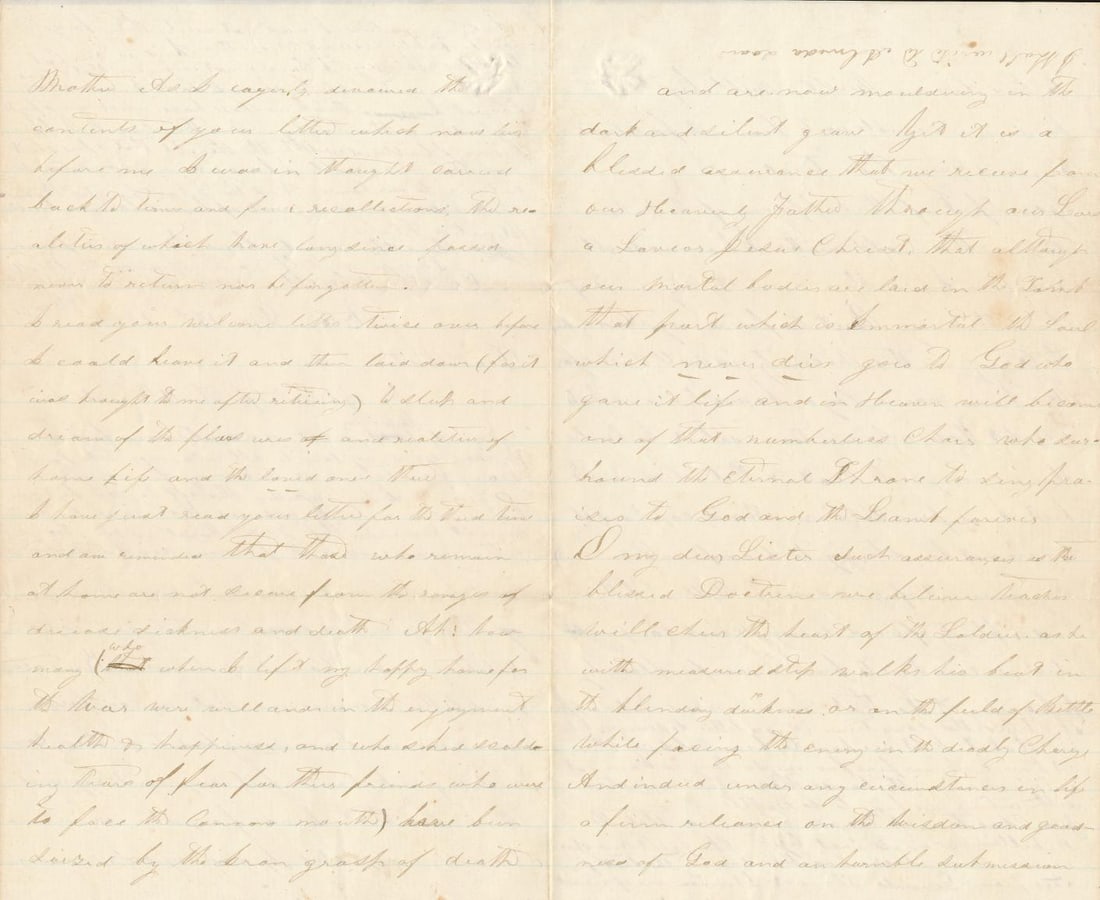 Mother As I eagerly devoured the
contents of your letter which now lies
before me I was in thought carried
back to times and recollections, the re-
alities of which have long since passed
never to return nor be forgotten.
I read your welcome letter twice over before
I could leave it and then laid down (for it
was brought to me after retiring) to sleep and
dream of the pleasures of and realities of
home life and the loved ones there
I have just read your letter for the third time
and am reminded that those who remain
at home are not secure from the ravages of
disease sickness and death Ah! how
many (who when I left my happy home for
the War were well and in the enjoyment
health & happiness, and who shed scald-
ing tears of fear for their friends who were
to face the Cannons mouth) have been
seized by the Iron grasp of death
I shall write to Almeda soon
and are now mouldering in the
dark and silent grave Yet it is a
blessed assurance that we receive from
our Heavenly Father through our Lord
a Savior Jesus Christ, that although
our mortal bodies are laid in the Tomb
that part which is Immortal the Soul
which never dies goes to God who
gave it life and in Heaven will become
one of that numberless Choir who sur-
round the Eternal Throne to sing pra-
ises to God and the Lamb forever
O my dear Sister such assurances as the
blessed Doctrine we believe teaches
will cheer the heart of the Soldier as he
with measured step walks his beat in
the blinding darkness or on the field of Battle
while facing the enemy in the deadly Charge
And indeed under any circumstances in life
a firm reliance on the Wisdom and good-
ness of God and an humble submission